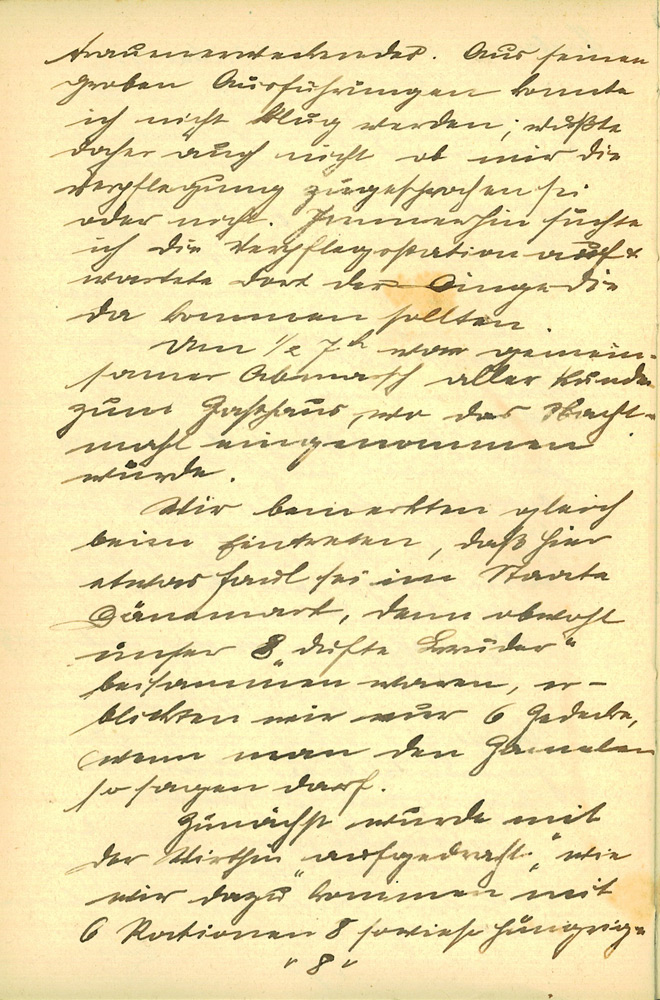 trauenerweckendes. Aus seinen
groben Ausführungen konnte
ich nicht klug werden; wußte
daher auch nicht ob mir die
Verpflegung zugesprochen sei
oder nicht. Immerhin suchte
ich die Verpflegsstation auf &
wartete dort der Dinge die
da kommen sollten
Um 1/2 7 h war gemein-
samer Abmarsch aller Kunden
zum Gasthaus, wo das Nacht-
mahl eingenommen
wurde.
Wir bemerkten gleich
beim Eintreten, daß hier
etwas faul sei im Staate
Dänemark, denn obwohl
unser 8 „dufte Brüder“
beisammen waren, er-
blickten wir nur 6 Gedecke,
(wenn man den
so sagen darf.
Zunächst wurde mit
der Wirthin aufgedraht, „wie
wir dazu“ kommen mit
6 Rationen 8 sowieso hungrige
„ 8 “